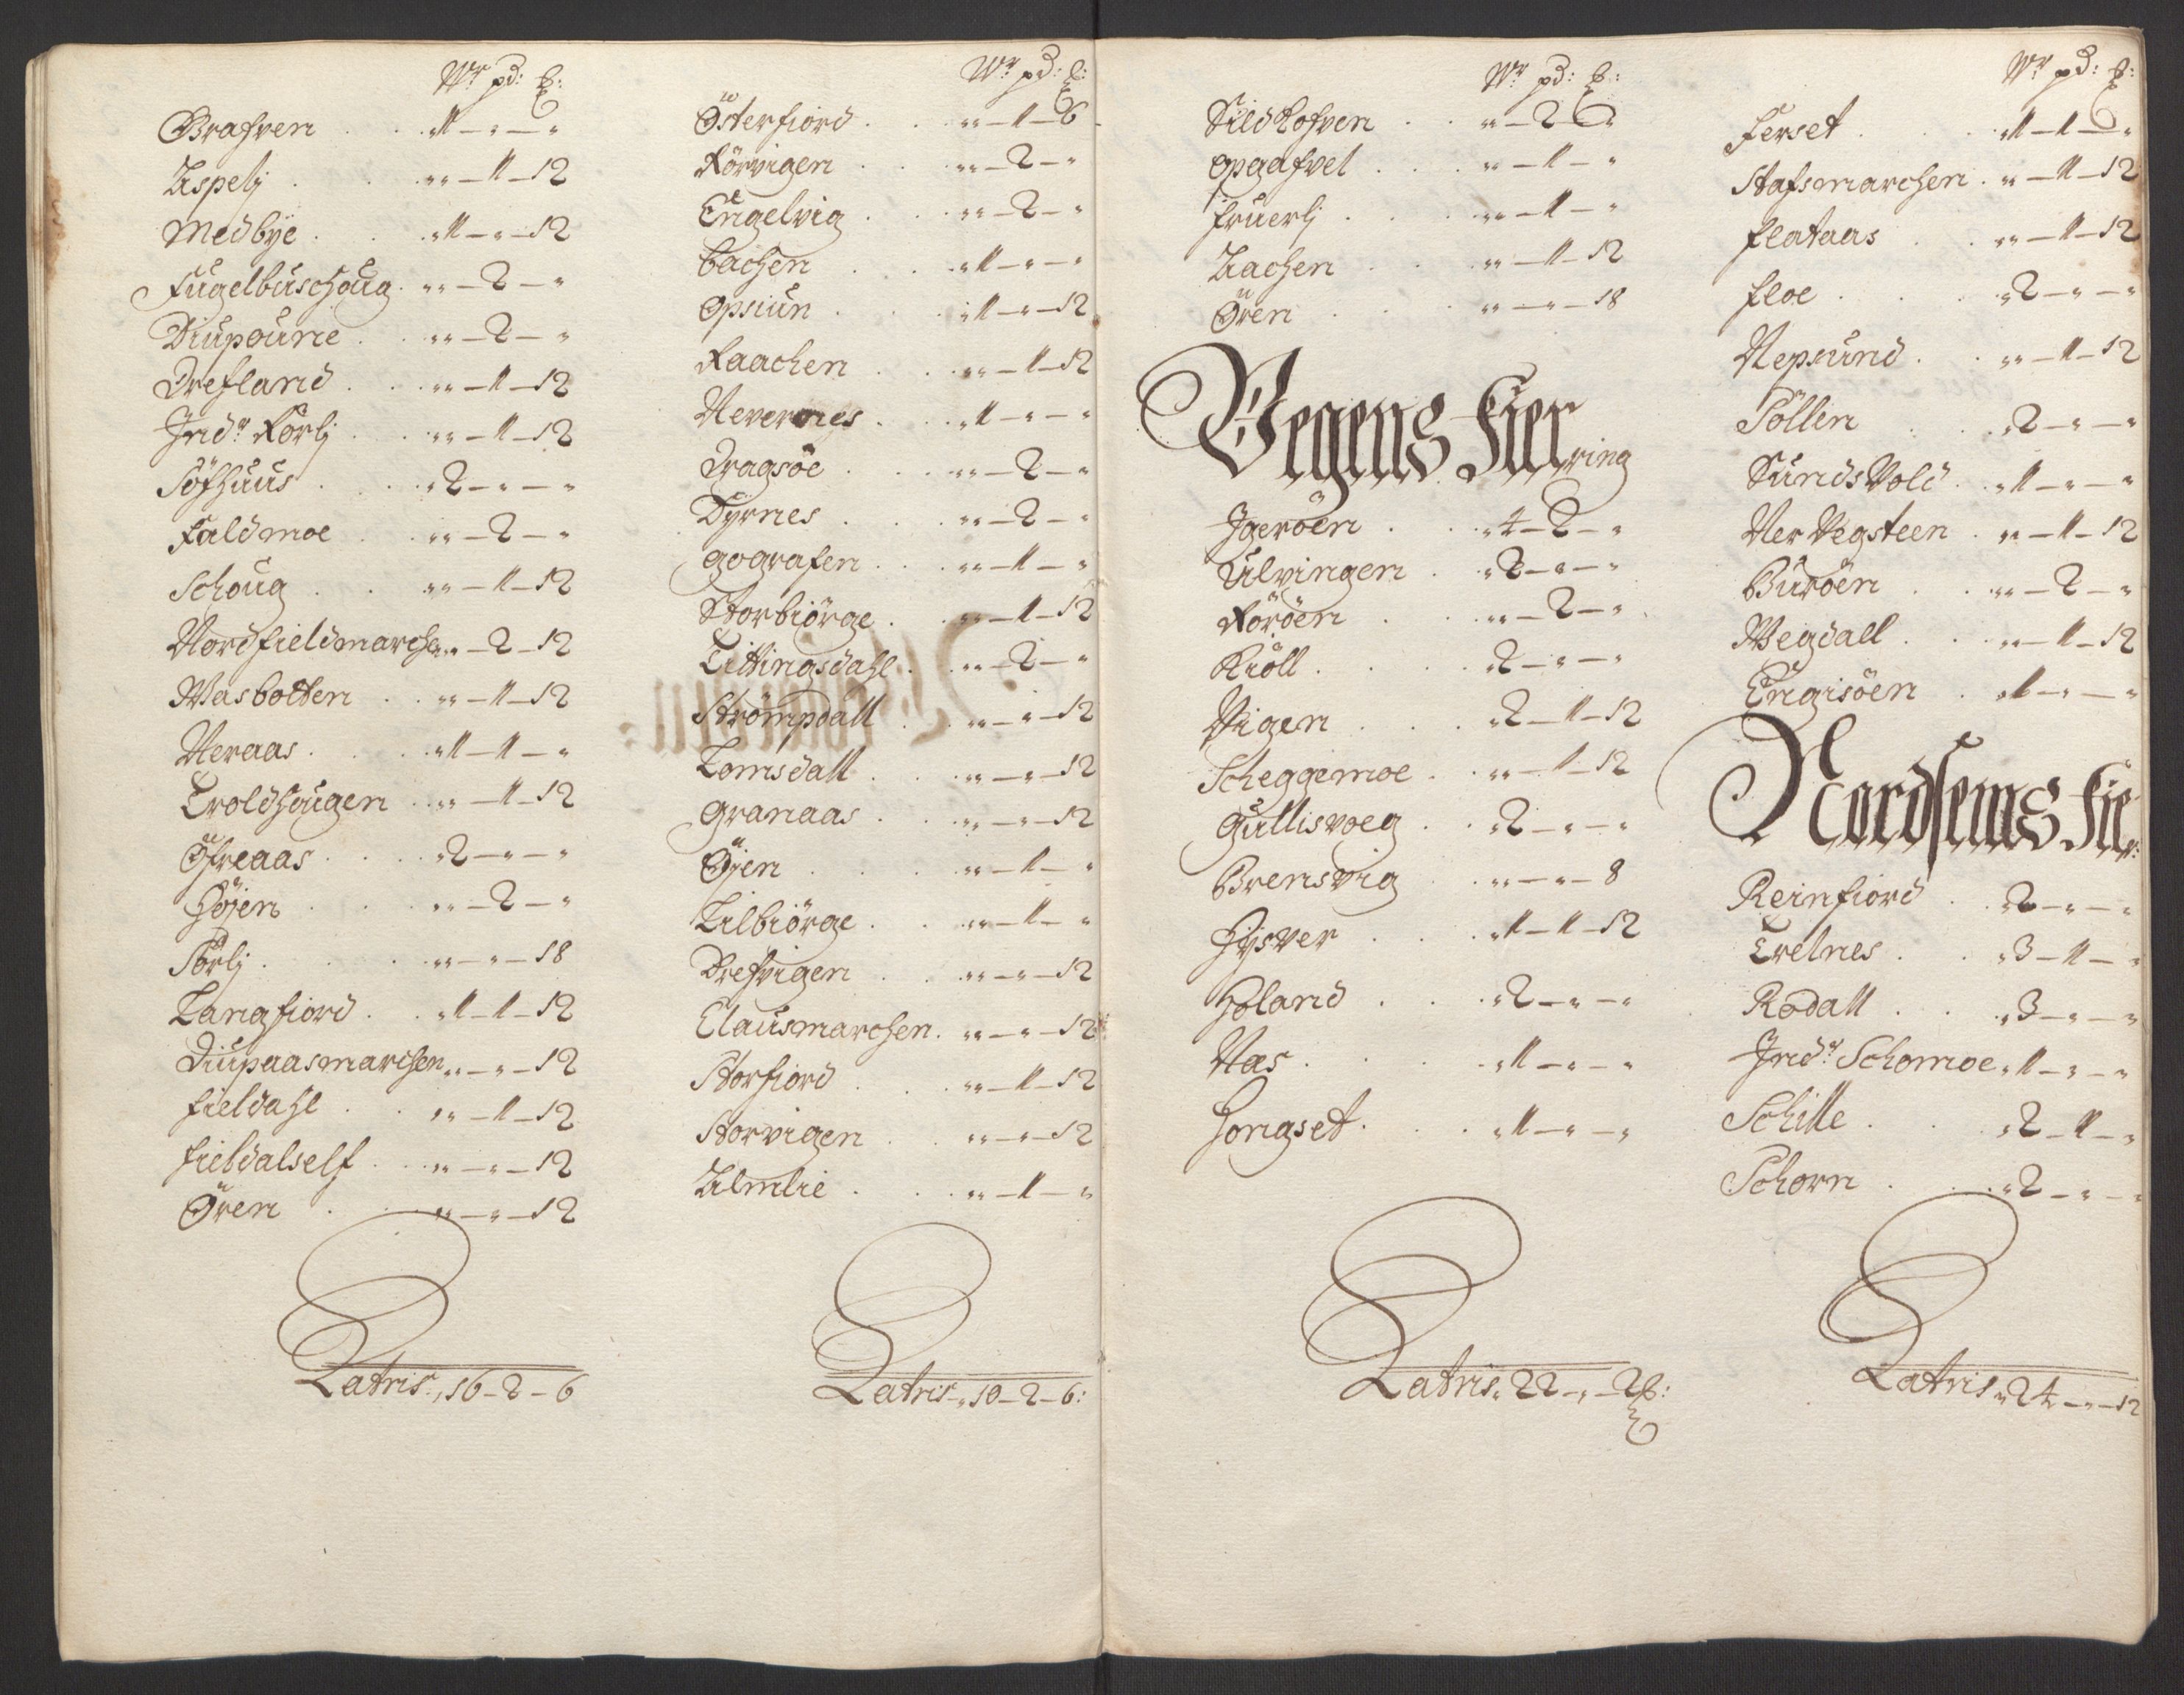 Wr pd: ƀ:
Brafven . . „1 – „ – „
Aspelj . . „„ – 1 – 12
Medbÿe . . „1 – „ – 12
Fugelbuschoug . „„ – 2 – „
Diupourie . „„ – 2 – „
Drefland . . „„ – 1 – 12
Indr Körlj . „„ – 1 – 12
Söfhuus . . „2 – „ – „
Faldmoe . „„ – 2 – „
Schoug . . „„ – 1 – 12
Nordfieldmarche „„ – 2 – 12
Wasbotten . . „„ – 1 – 12
Neraas . . „1 – 1 – „
Troldhougen . „„ – 1 – 12
Öfreaas . . „2 – „ – „
Höjen . . „„ – 2 – „
Sörlj . . „„ – „ – 18
Langfiord . . „1 – 1 – 12
Diupaasmarchen „„ – „ – 12
fieldahl . . „„ – 1 – 12
fieldalself . „„ – „ – 12
Ören . . „„ – „ – 12
Latris „16 – 2 – 6
Wr pd: ƀ:
Österfiord . . „„ – 1 – 6
Körvigen . . „„ – 2 – „
Engelvig . . „„ – 2 – „
bachen . . „1 – „ – „
Opsiun . . „1 – „ – 12
Kaachen . . „„ – 1 – 12
Nevernes . . „1 – „ – „
Dragsöe . . „„ – 2 – „
Dÿrnes . . „„ – 2 – „
gografen . . „„ – 1 – „
Storbiörge . „„ – 1 – 12
Tittingsdahl . „„ – 2 – „
Strömpdall . „„ – „ – 12
Tomsdall . . „„ – „ – 12
Granaas . . „„ – „ – 12
Öjen . . „„ – 1 – „
Lilbiörge . . „„ – 1 – „
Drefvigen . . „„ – „ – 12
Clausmarchen . „„ – „ – 12
Storfiord . . „„ – 1 – 12
Storvigen . . „„ – „ – 12
Almlie . . „„ – 1 – „
Latris „10 – 2 – 6:
Wr pd: ƀ:
Sildhofven . . „„ – 2 – „
opgafvel . . „„ – 1 – „
fruerlj . . „„ – 1 – „
Aachen . . „„ – 1 – 12
Ören . . „„ – „ – 18
Vegens Fierring
Igeröen . . „4 – 2 – „
Ulvingen . „2 – „ – „
Röröen . . „„ – 2 – „
Kiöll . . „2 – „ – „
Vigen . . „2 – 1 – 12
Scheggemoe . „„ – 1 – 12
Gullisvoeg . . „2 – „ – „
Brensvig . „„ – „ – 8
Hÿsver . . „1 – 1 – 12
Holand . . „2 – „ – „
Nas . . „1 – „ – „
Hongset . . „1 – „ – „
Latris „22 – „ – 2 ƀ:
Wr pd: ƀ:
Ferset . . „1 – 1 – „
Stafsmarchen . „„ – 1 – 12
flataas . . „„ – 1 – 12
floe . . „2 – „ – „
Nepsund . . „„ – 1 – 12
Söllen . . „2 – „ – „
Sunds Vold . „1 – „ – „
Ner Vegsteen . „„ – 1 – 12
Buröen . . „„ – 2 – „
Wegdall . . „„ – 1 – 12
Engisöen . „1 – „ – „
Nordsems Fier:
Reinfiord . . „2 – „ – „
Trelnes . . „3 – 1 – „
Rodall . . „3 – „ – „
Indr Schomoe „1 – „ – „
Schille . . „2 – 1 – „
Schorn . . „2 – „ – „
Latris „24 – „ – 12